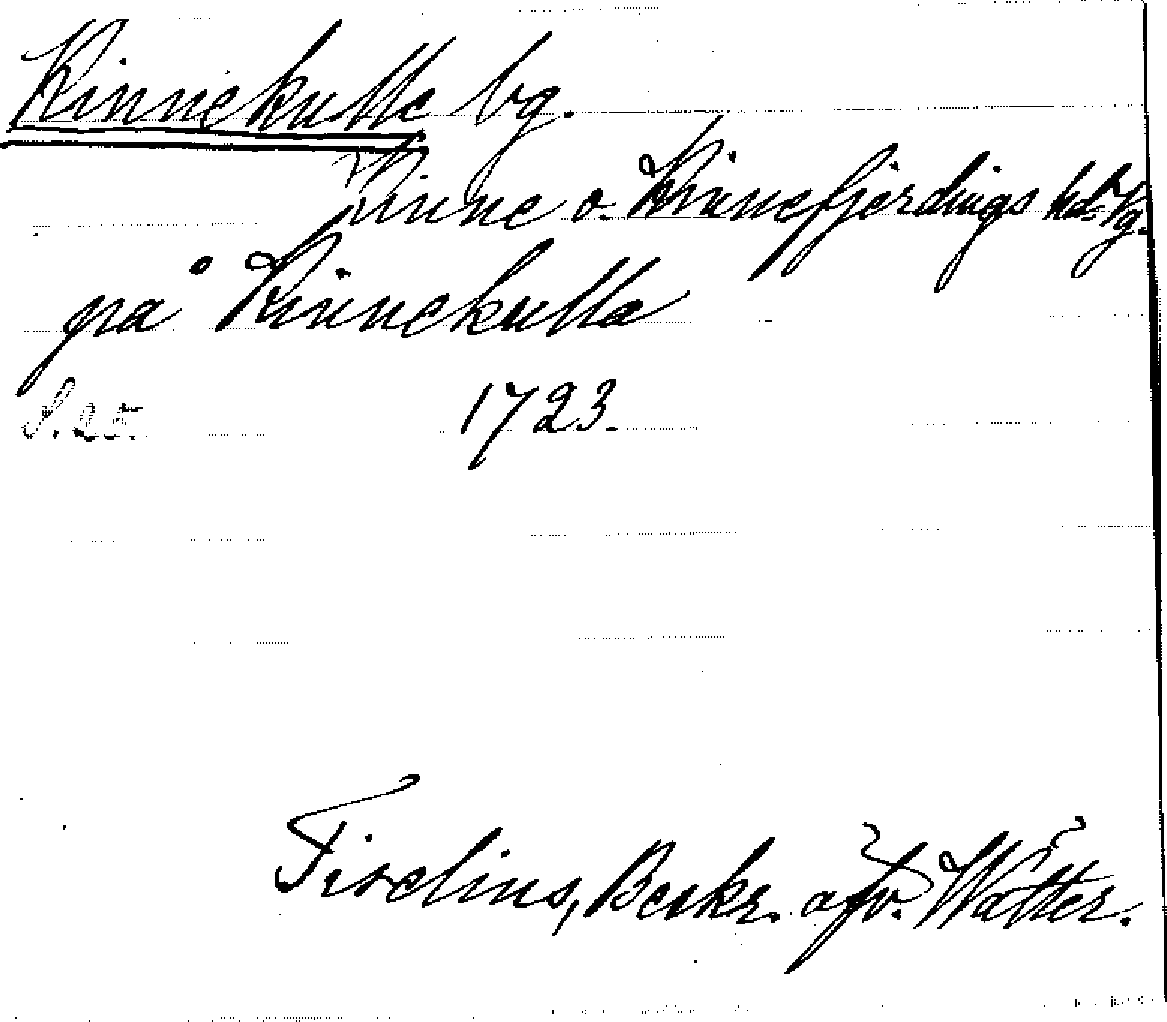 Kinnekulle bg.
Kinne o. Kinnefjerdings hd Vg.
på Kinnekulle
S. 25. 1723.
Tiselius, Beskr. öfv. Wätter.